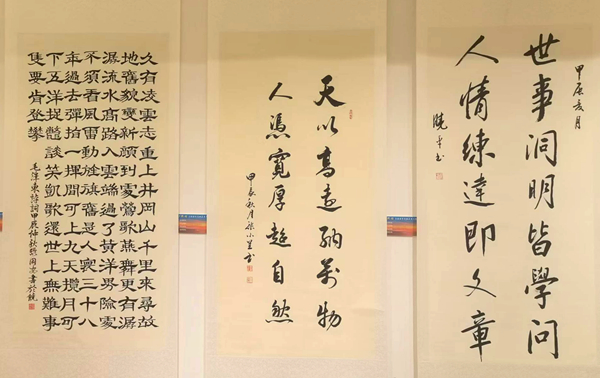 世事洞明皆學問
甲辰亥月
人情練達即文章
曉平書
天以高遠納萬物
人憑寬厚超自然
甲辰秋月 小星書
久有凌雲志重上井岡山千里來尋故
地舊貌變新顏到處鶯歌燕舞更有潺
潺流水高路入雲端過了黃洋界險處
不須看風雷動旌旗奮是人寰三十八
年過去彈指一揮間可上九天攬月可
下五洋捉鱉談笑凱歌還世上無難事
隻要肯登攀
毛澤東詩詞甲辰仲秋張國 書於饒